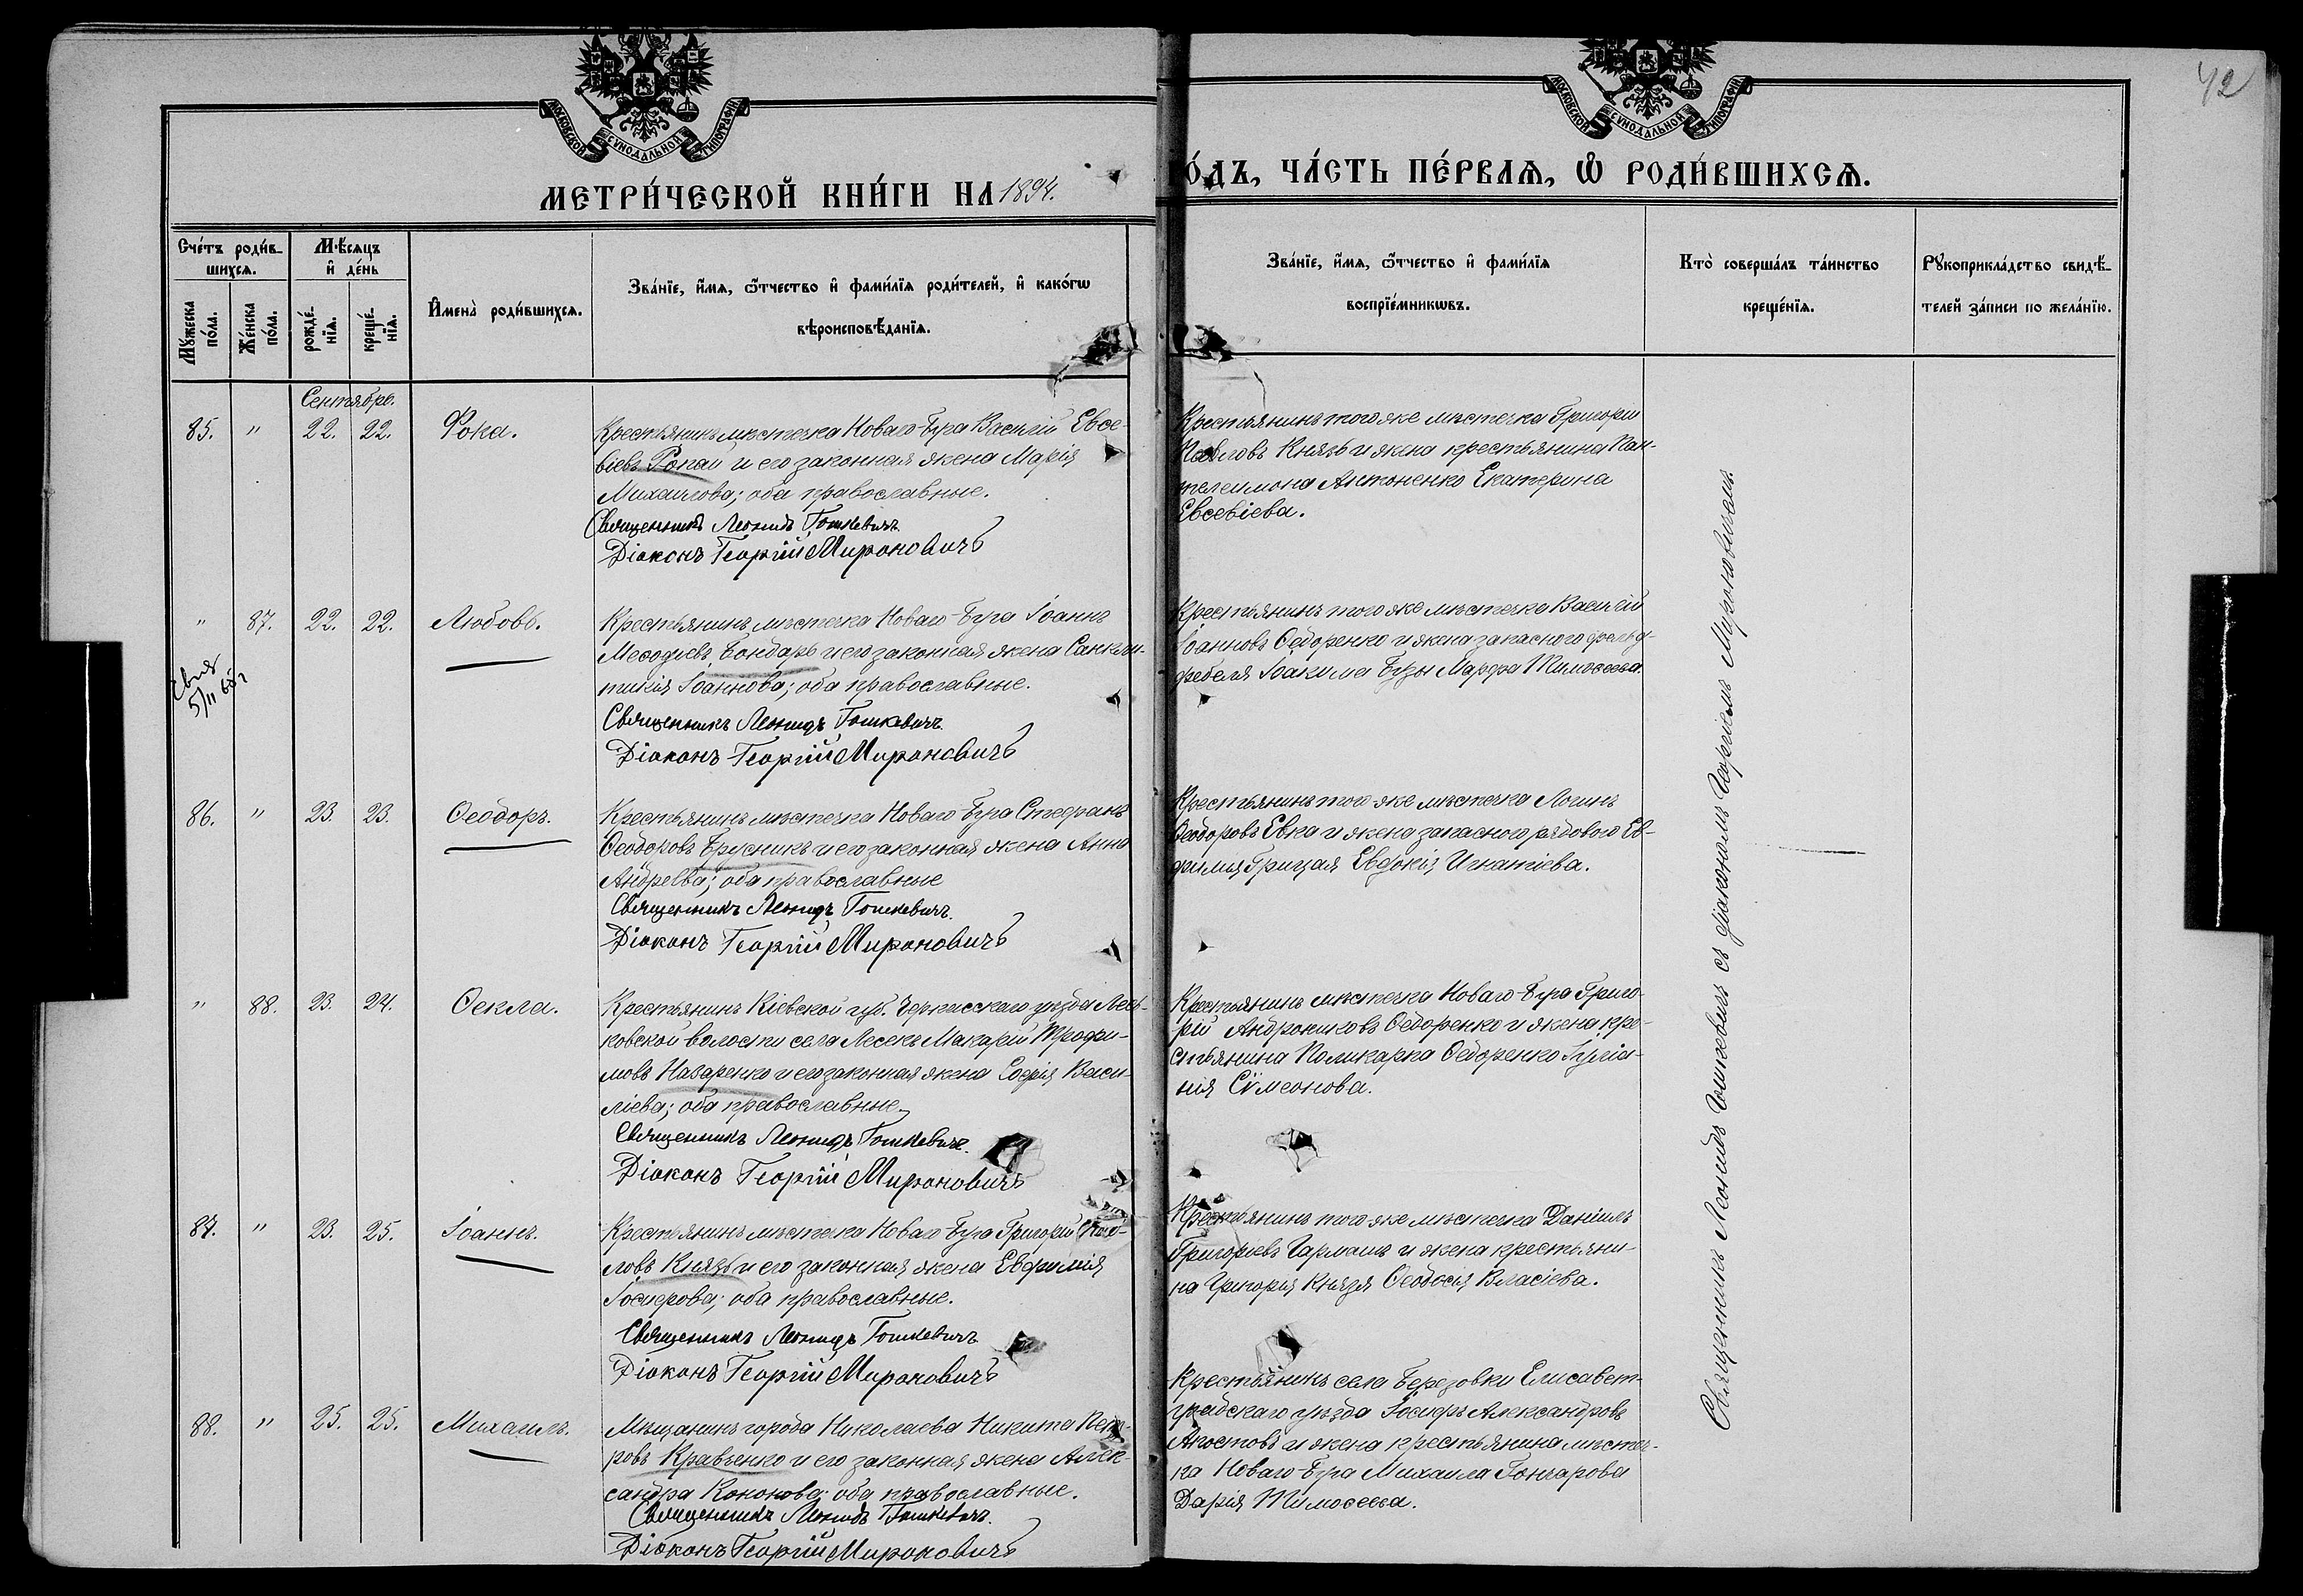 42
МОСКОВСКОЙ СѴНОДАЛЬНОЙ ТИПОГРАФІИ
МОСКОВСКОЙ СѴНОДАЛЬНОЙ ТИПОГРАФІИ
МЕТРИ́ЧЕСКОЙ КНИ́ГИ НА 1894.
О́ДЪ, ЧА́СТЬ ПЕ́РВАѦ, Ѽ РОДИ́ВШИХСѦ.
Сче́тъ роди́в-
шихсѧ.
Мꙋ́жеска по́ла.
Же́нска по́ла.
Мѣ́сѧцъ
и҆ де́нь
рожде́-
нїѧ.
креще́-
нїѧ.
И҆мена̀ роди́вшихсѧ.
Зва́нїе, и҆́мѧ, ѻ҆́тчество и҆ фами́лїѧ роди́телей, и҆ како́гѡ
вѣроисповѣ́данїѧ.
Зва́нїе, и҆́мѧ, ѻ҆́тчество и҆ фами́лїѧ
воспрїе́мникѡвъ.
Кто̀ соверша́лъ та́инство
креще́нїѧ.
Рꙋкоприкла́дство свидѣ́-
телей за́писи по жела́нїю.
Сентябрь.
85. " 22. 22. Фока.
Крестьянинъ мѣстечка Новаго-Буга Василій Евсе-
віевъ Ропай и его законная жена Марія
Михаилова; оба православные.
Священникъ Леонидъ Гошкевичъ
Діаконъ Георгій Мироновичъ
Крестьянинъ того же мѣстечка Григорій
Павловъ Князь и жена крестьянина Пан-
телеимона Антоненко Екатерина
Евсевіева.
" 87. 22. 22. Любовь.
5/II 65 г
Крестьянинъ мѣстечка Новаго-Буга Іоаннъ
Меѳодіевъ Бондарь и его законная жена Санкли-
тикія Іоаннова; оба православные.
Священникъ Леонидъ Гошкевичъ
Діаконъ Георгій Мироновичъ
Крестьянинъ того же мѣстечка Василій
Іоанновъ Ѳедоренко и жена запасного фельд-
фебеля Іоакима Бузы Марфа Тимоѳеева.
86. " 23. 23. Ѳеодоръ.
Крестьянинъ мѣстечка Новаго-Буга Стефанъ
Ѳеодоровъ Брусникъ и его законная жена Анна
Андреева; оба православные
Священникъ Леонидъ Гошкевичъ.
Діаконъ Георгій Мироновичъ
Крестьянинъ того же мѣстечка Логинъ
Ѳеодоровъ Евка и жена запасного рядового Ев-
фимія Грицая Евдокія Игнатіева.
" 88. 23. 24. Ѳекла.
Крестьянинъ Кіевской губ. Черкасскаго уѣзда Лесь-
ковской волости села Лесекъ Макарій Трофи-
мовъ Назаренко и его законная жена Софія Васи-
ліева; оба православные.
Священникъ Леонидъ Гошкевичъ.
Діаконъ Георгій Мироновичъ
Крестьянинъ мѣстечка Новаго-Буга Григо-
рій Андрониковъ Ѳедоренко и жена кре-
стьянина Поликарпа Ѳедоренко Іуліа-
нія Сѷмеонова.
87. " 23. 25. Іоаннъ.
Крестьянинъ мѣстечка Новаго-Буга Григорій Пав-
ловъ Князь и его законная жена Евфимія
Іосифова; оба православные.
Священникъ Леонидъ Гошкевичъ
Діаконъ Георгій Мироновичъ
Крестьянинъ того же мѣстечка Даніилъ
Григоріевъ Гармашъ и жена крестьяни-
на Григорія Князя Ѳеодосія Власіева.
88. " 25. 25. Михаилъ.
Мѣщанинъ города Николаева Никита Пет-
ровъ Кравченко и его законная жена Алек-
сандра Кононова; оба православные.
Священникъ Леонидъ Гошкевичъ.
Діаконъ Георгій Мироновичъ
Крестьянинъ села Березовки Елисавет-
градскаго уѣзда Іосифъ Александровъ
Апостовъ и жена крестьянина мѣстеч-
ка Новаго-Буга Михаила Гончарова
Дарія Тимоѳеева.
Священникъ Леонидъ Гошкевичъ съ діакономъ Георгіемъ Мироновичемъ.